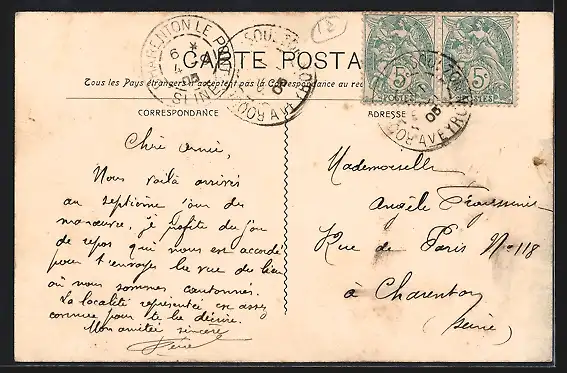 CARTE POSTALE
Tous les Pays étrangers n'acceptent pas la Correspondance au
CORRESPONDANCE
ADRESSE
CHARENTON LE PONT
6
4
05
SEINE
AVEYRON
05
5c
POSTES
5c
POSTES
AVEYRON
05
Chère amie,
Nous voilà arrivés
au septième jour des
manœuvre, je profite du jour
de repos qui nous est accordé
pour t'envoyer la vue du lieu
où nous sommes cantonnés.
La localité représentée est assez
connue pour te la décrire.
Mon amitiée sincère
Mademoiselle
Angèle
Rue de Paris N° 118
à Charenton
(Seine)